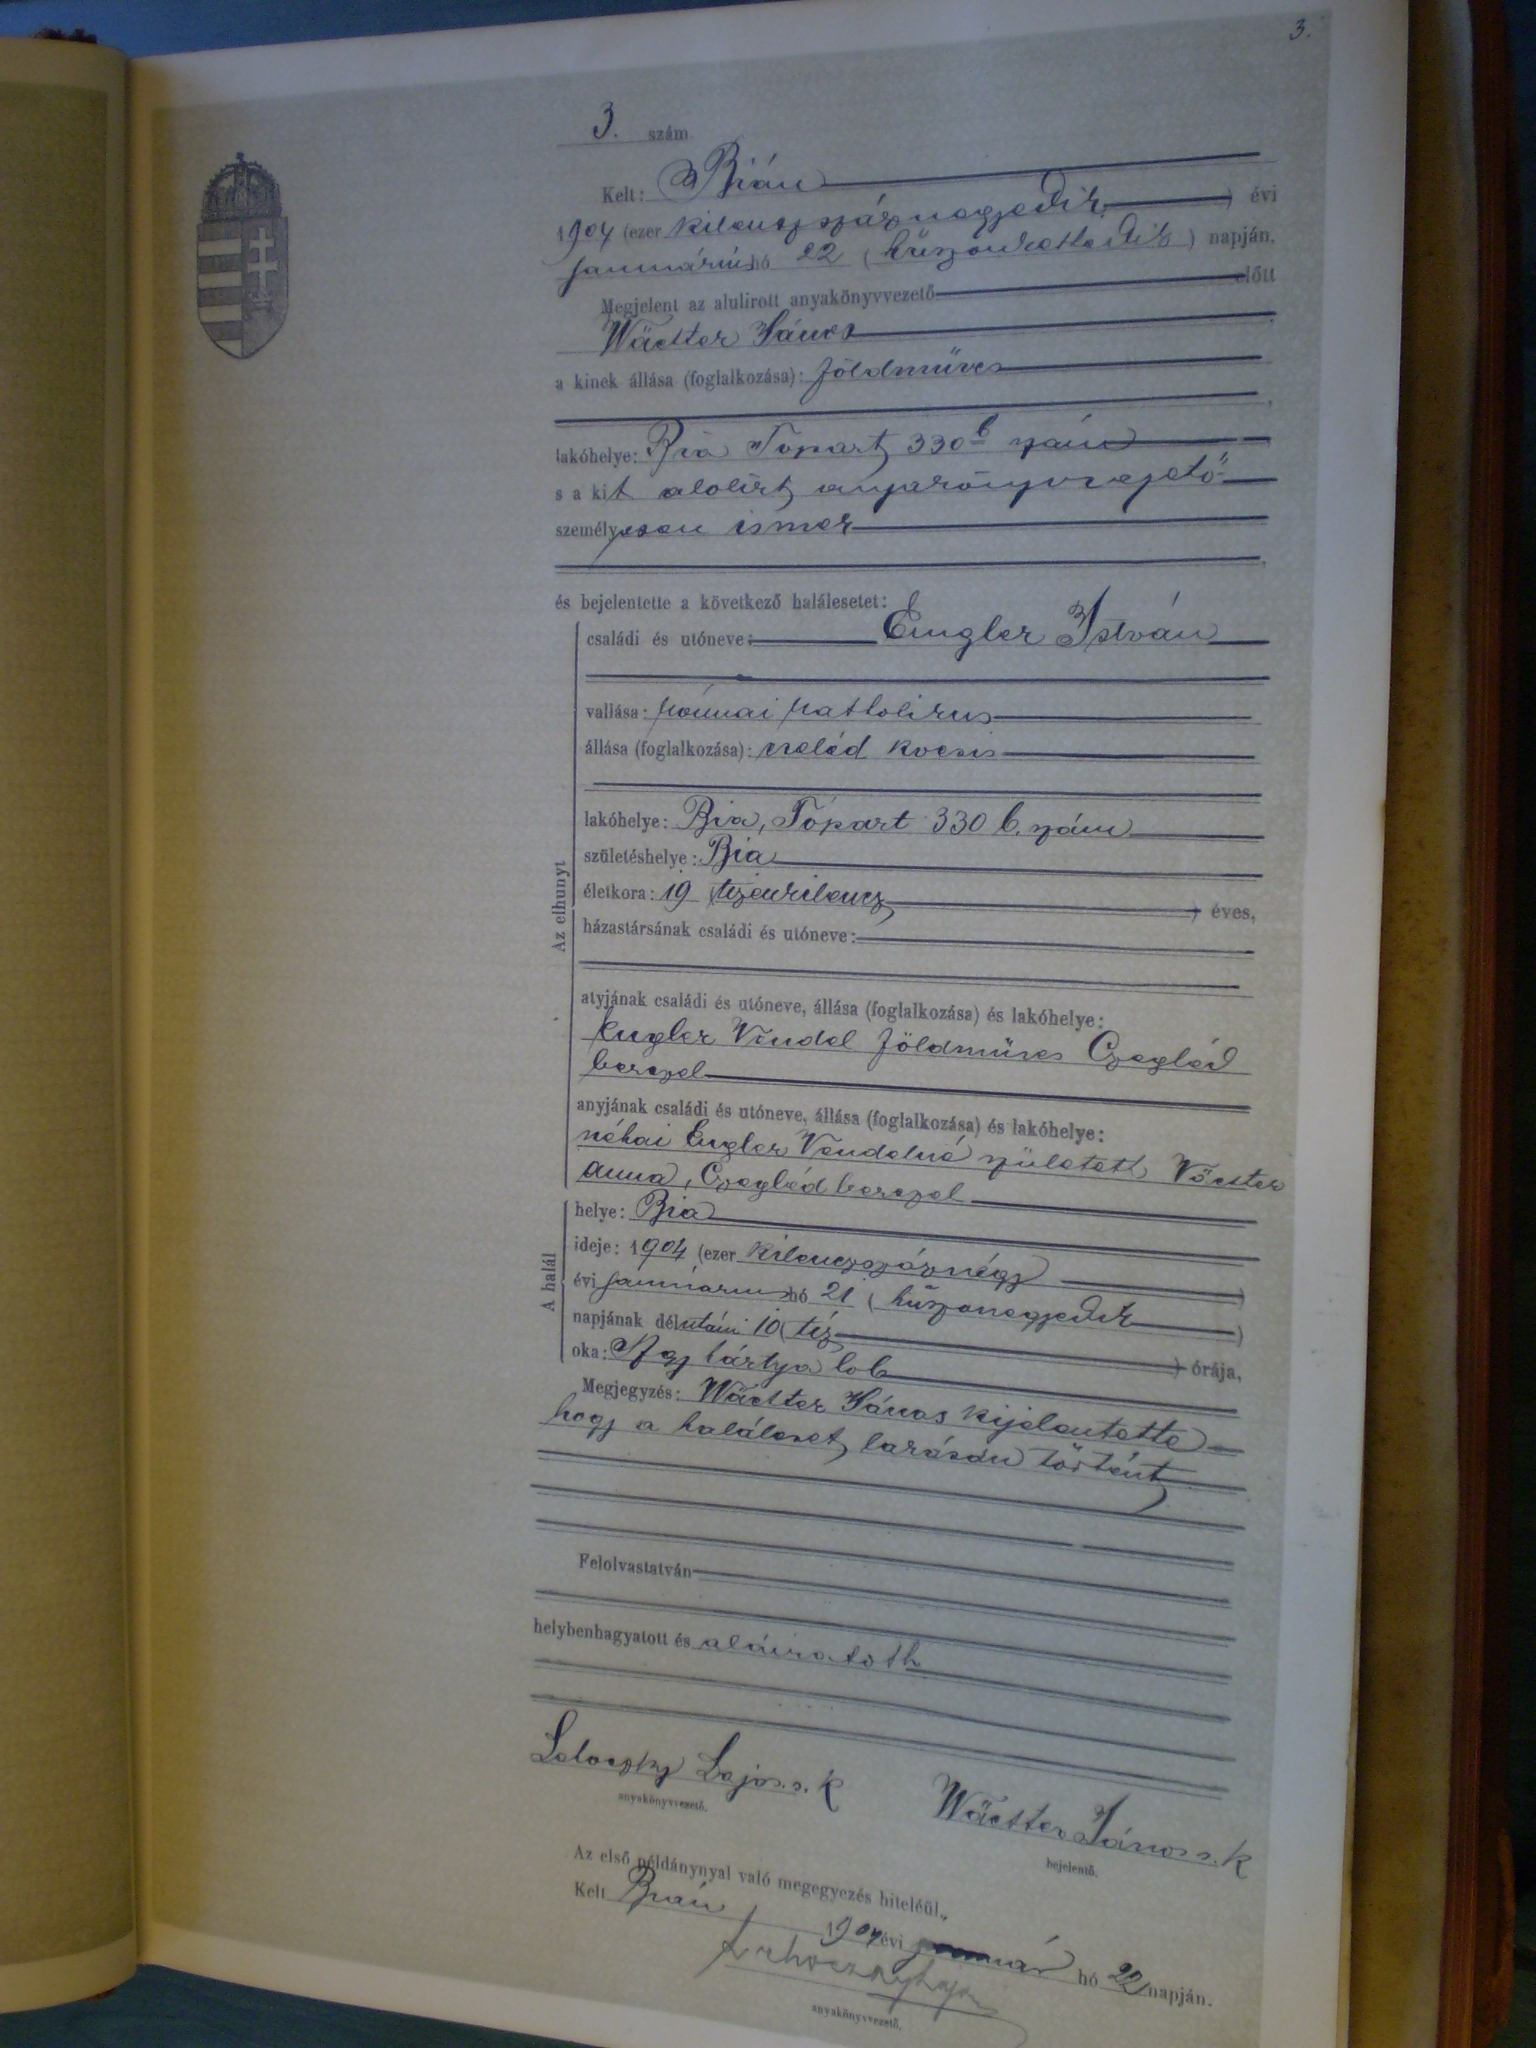 3.
3. szám
Kelt: Bián
1904 (ezer kilenczszáznegyedik) évi
januárius hó 22 (huszonkettedik) napján.
Megjelent az alulirott anyakönyvvezető előtt
Wächter János
a kinek állása (foglalkozása): földmüves
lakóhelye: Bia Tópart 330 b szám
s a kit alolirt anyakönyvvezető
személyesen ismer
és bejelentette a következő halálesetet:
Az elhunyt
családi és utóneve: Engler István
vallása: római katholikus
állása (foglalkozása): cseléd kocsis
lakóhelye: Bia, Tópart 330 b. szám
születéshelye: Bia
életkora: 19 (tizenkilencz) éves,
házastársának családi és utóneve:
atyjának családi és utóneve, állása (foglalkozása) és lakóhelye:
Engler Vendel földmüves Czegléd
berczel
anyjának családi és utóneve, állása (foglalkozása) és lakóhelye:
néhai Engler Vendelné született Wächter
Anna, Czegléd berczel
A halál
helye: Bia
ideje: 1904 (ezer kilenczszáznégy)
évi januárius hó 21 (huszonegyedik)
napjának délutáni 10 (tiz) órája,
oka: Agyhártya lob
Megjegyzés: Wächter János kijelentette
hogy a haláleset történt
Felolvastatván
helybenhagyatott és aláiratoth
Lajos s. k
anyakönyvvezető.
Wächter János s. k
bejelentő.
Az első példánynyal való megegyezés hiteléül.
Kelt Bián 1904 évi január hó 22 napján.
anyakönyvvezető.